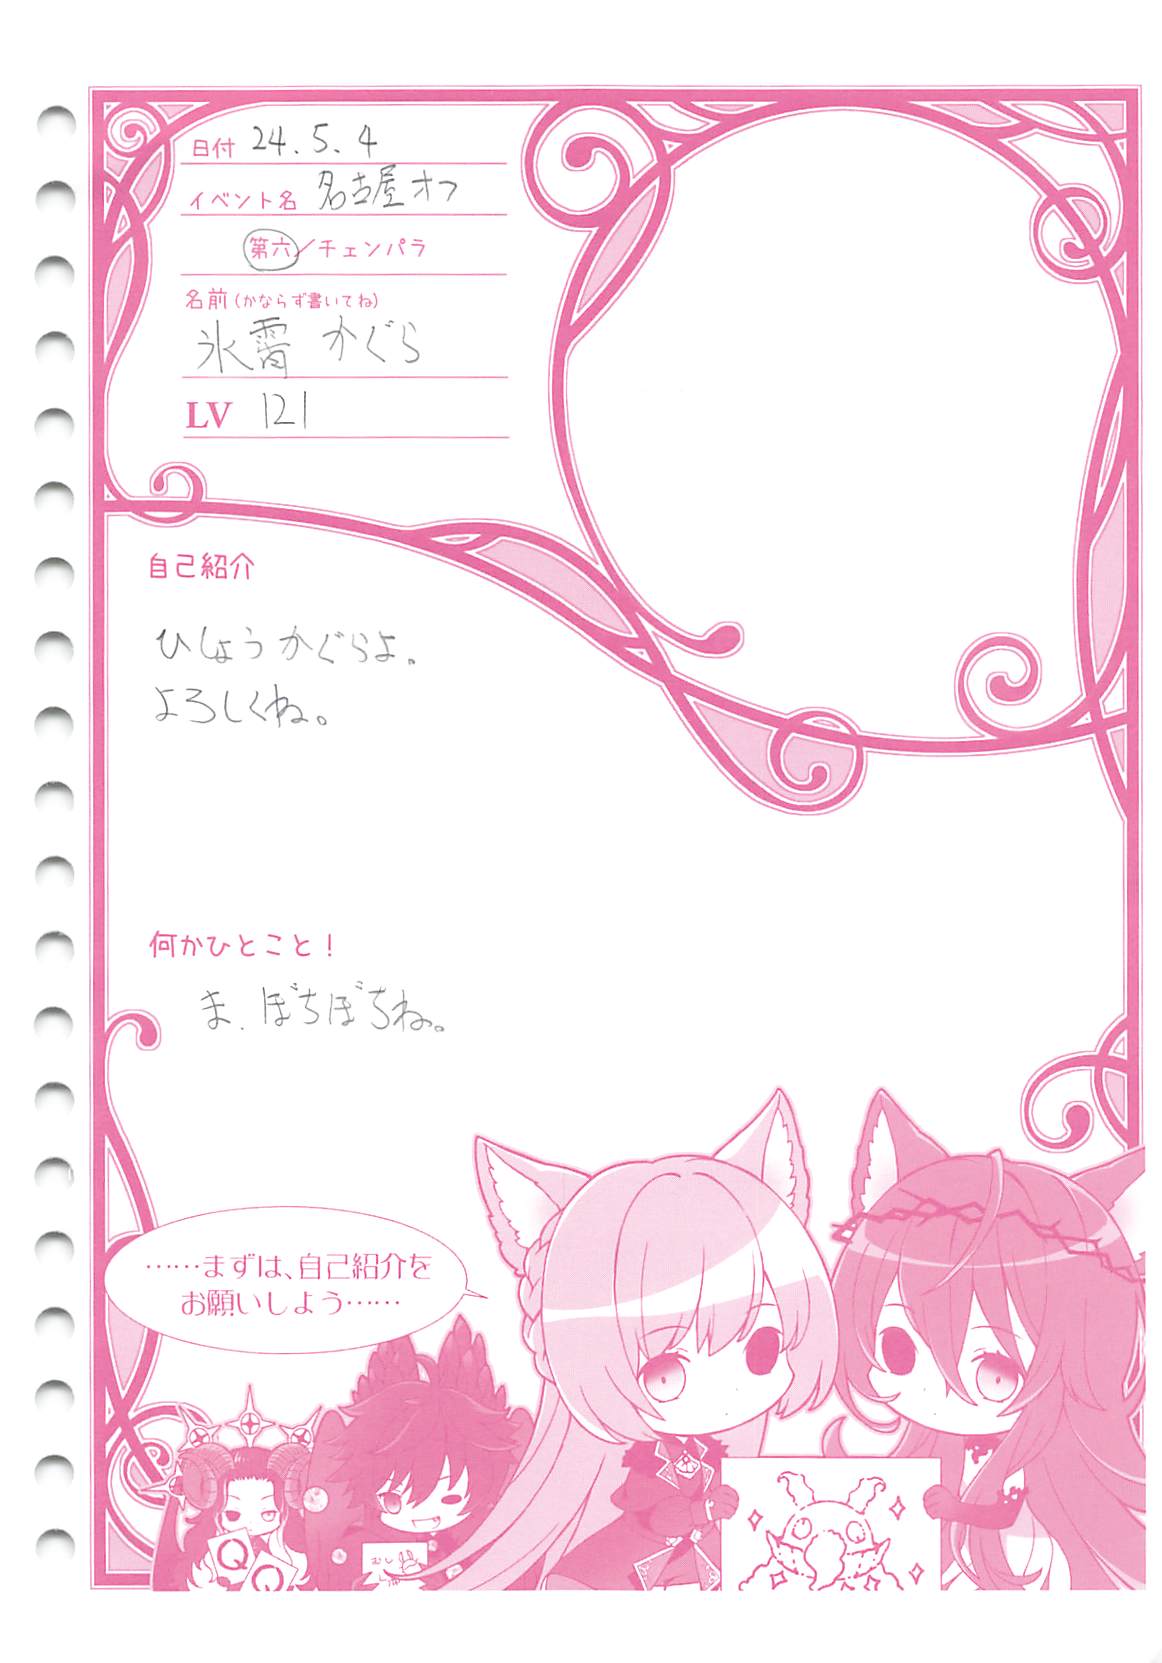 日付 24.5.4
イベント名 名古屋オフ
第六/チェンパラ
名前(かならず書いてね)
氷霄 かぐら
LV 121
自己紹介
ひしょうかぐらよ。
よろしくね。
何かひとこと!
ま、ぼちぼちね。
……まずは、自己紹介を
お願いしよう……
Q
Q